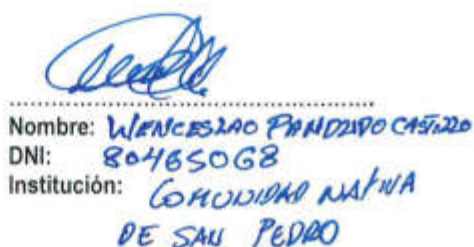 Nombre: WENCESLAO PANDURO CASTILLO
DNI: 80465068
Institución: COMUNIDAD NATIVA
DE SAN PEDRO